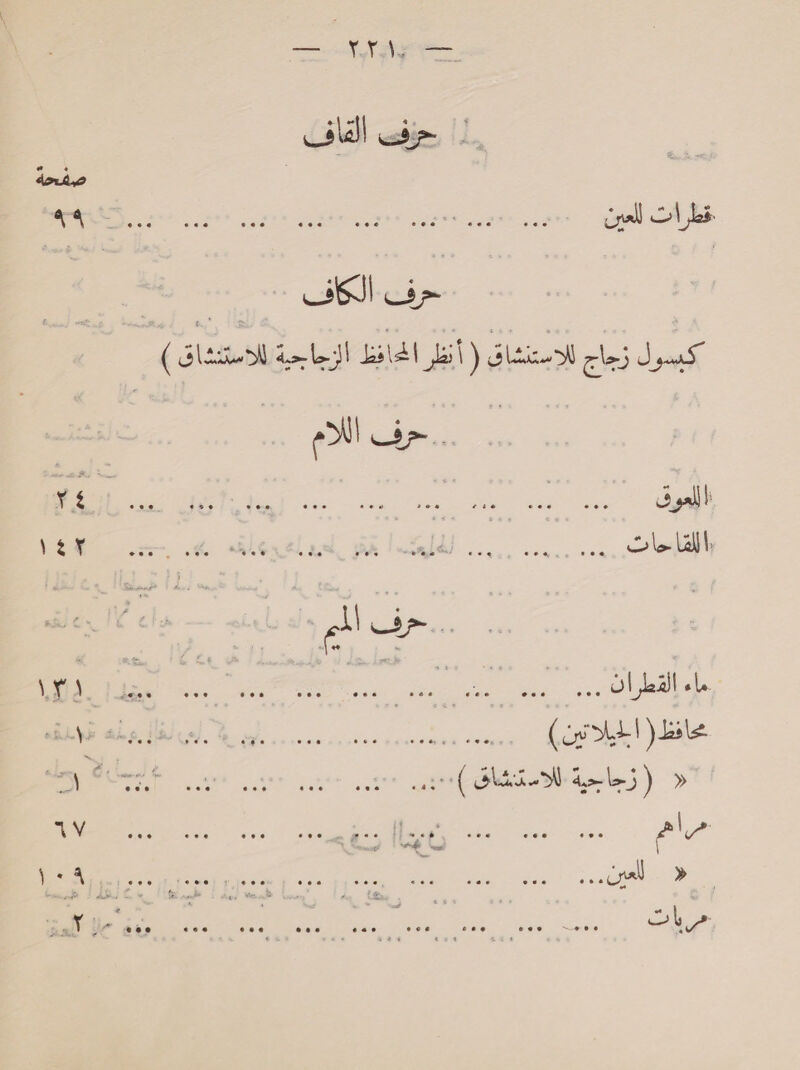 — ٢٢١ —
حرف القاف
صفحة
قطرات للعين ... ... ... ... ... ... ... ... ٩٩
حرف الكاف
كبسول زجاج للاستنشاق ( أنظر المحافظ الزجاجية للاستنشاق )
حرف اللام
اللعوق ... ... ... ... ... ... ... ... ... ٢٤
اللقاحات ... ... ... ... ... ... ... ... ... ١٤٢
حرف الميم
ماء القطران ... ... ... ... ... ... ... ... ... ١٣١
محافظ ( الجيلاتين ) ... ... ... ... ... ... ... ١
« ( زجاجية للاستنشاق ) ... ... ... ... ... ... ١
مراهم ... ... ... ... ... ... ... ... ... ٦٧
« للعين ... ... ... ... ... ... ... ... ... ١٠٩
مربات ... ... ... ... ... ... ... ... ... ٢